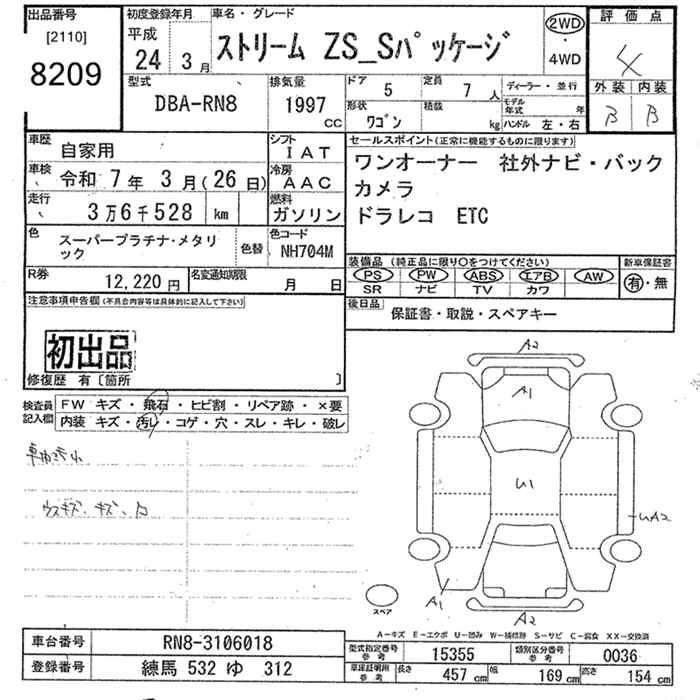 出品番号
[2110]
8209
初度登録年月
平成
24 3月
車名・グレード
ストリーム ZS_Sパッケージ
2WD
・
4WD
評価点
4
外装 内装
B B
型式
DBA-RN8
排気量
1997 cc
ドア 5
定員 7人
形状 ワゴン
積載 kg
ディーラー・並行
モデル年式 年
ハンドル 左・右
車歴 自家用
シフト IAT
車検 令和 7年 3月(26日)
冷房 AAC
走行 3万6千528 km
燃料 ガソリン
色 スーパープラチナ・メタリック
色替
色コード NH704M
R券 12,220円
名変通知期限 月 日
セールスポイント(正常に機能するものに限ります)
ワンオーナー 社外ナビ・バック
カメラ
ドラレコ ETC
装備品 (純正品に限り○をつけてください)
PS PW ABS エアB AW
SR ナビ TV カワ
新車保証書
有・無
後日品 保証書・取説・スペアキー
注意事項申告欄(不具合内容等は具体的に記入して下さい)
初出品
修復歴 有〔箇所 〕
検査員記入欄
FW キズ・飛石・ヒビ割・リペア跡・×要
内装 キズ・汚レ・コゲ・穴・スレ・キレ・破レ
ウスキズ、キズ、
A2
A1
U1
UA2
A1
A2
スペア
A-キズ E-エクボ U-凹み W-補修跡 S-サビ C-腐食 XX-交換済
車台番号 RN8-3106018
登録番号 練馬 532 ゆ 312
型式指定番号 参考 15355
類別区分番号 参考 0036
車庫証明用 参考 長さ 457cm 幅 169cm 高さ 154cm